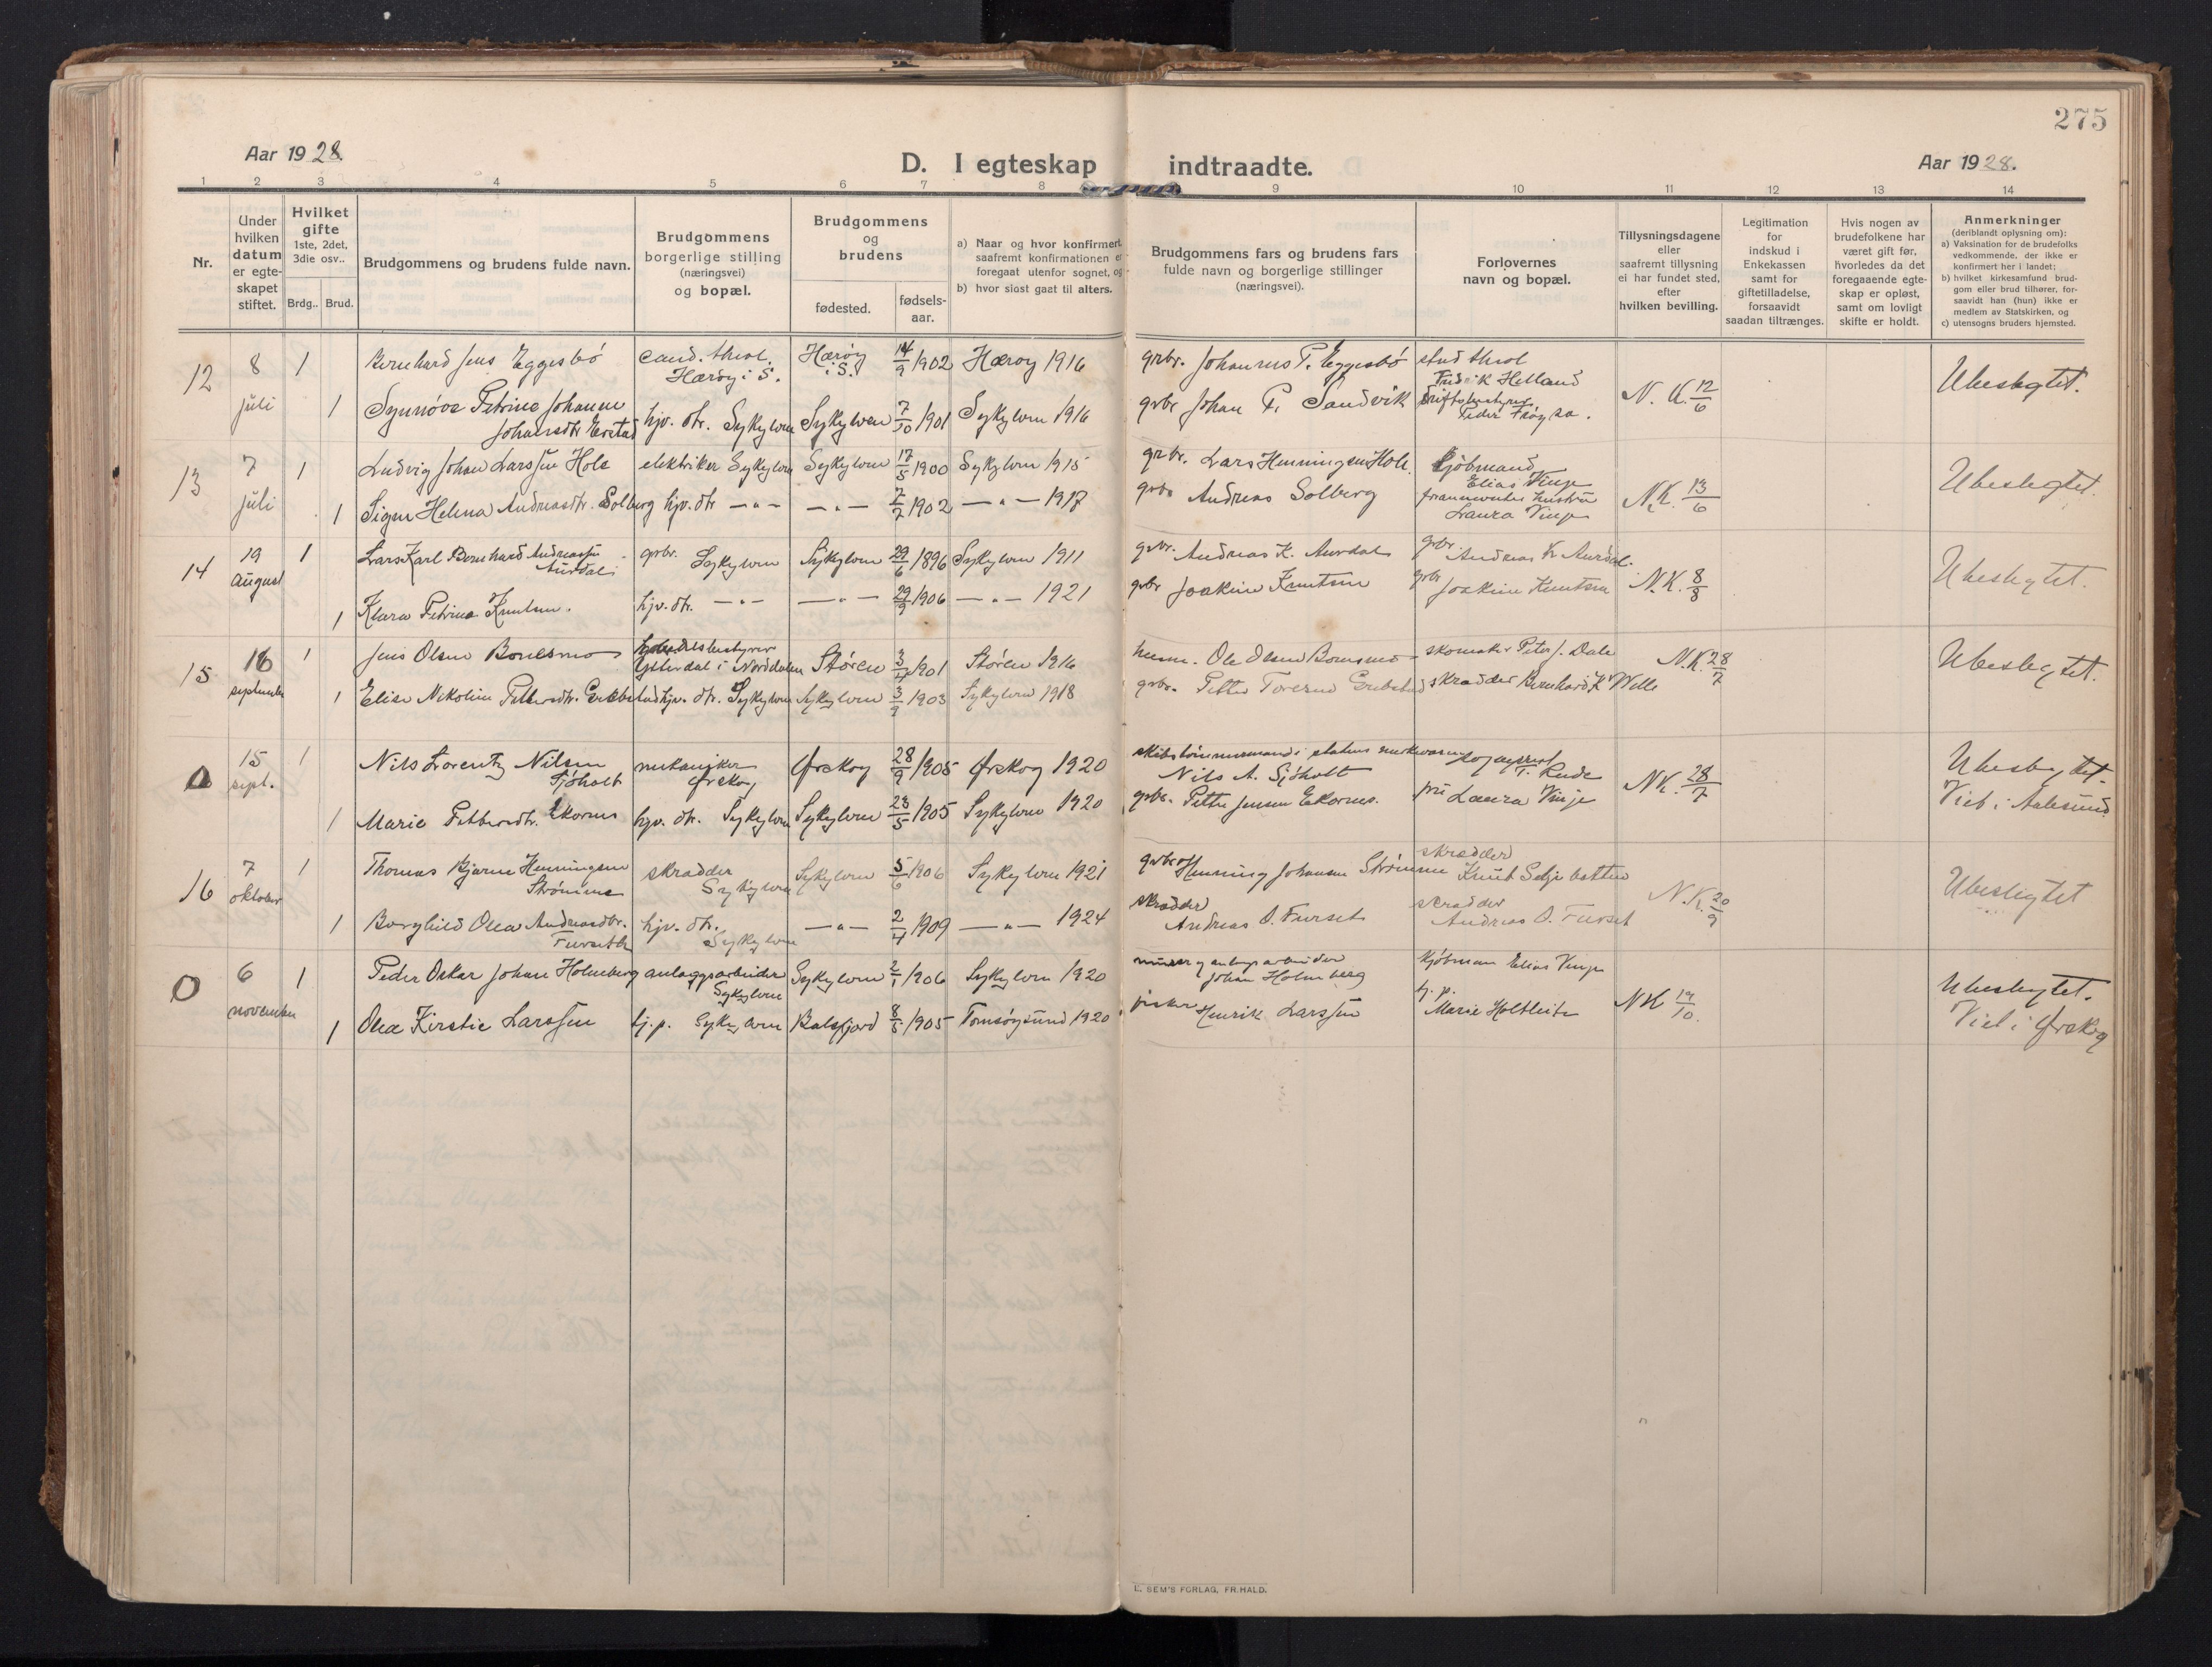 275
Aar 1928.
D. I egteskap indtraadte.
Aar 1928.
1 2 3 4 5 6 7 8 9 10 11 12 13 14
Nr.
Under hvilken datum er egte-skapet stiftet.
Hvilket gifte
1ste, 2det, 3die osv..
Brdg.. Brud.
Brudgommens og brudens fulde navn.
Brudgommens borgerlige stilling (næringsvei) og bopæl.
Brudgommens og brudens
fødested.
fødsels-aar.
a) Naar og hvor konfirmert saafremt konfirmationen er foregaat utenfor sognet, og
b) hvor sidst gaat til alters.
Brudgommens fars og brudens fars fulde navn og borgerlige stillinger (næringsvei).
Forlovernes navn og bopæl.
Tillysningsdagene eller saafremt tillysning ei har fundet sted, efter hvilken bevilling.
Legitimation for indskud i Enkekassen samt for giftetilladelse, forsaavidt saadan tiltrænges.
Hvis nogen av brudefolkene har været gift før, hvorledes da det foregaaende egte-skap er opløst, samt om lovligt skifte er holdt.
Anmerkninger
(deriblandt oplysning om):
a) Vaksination for de brudefolks vedkommende, der ikke er konfirmert her i landet;
b) hvilket kirkesamfund brud-gom eller brud tilhører, for-saavidt han (hun) ikke er medlem av Statskirken, og
c) utensogns bruders hjemsted.
12 8 juli 1 Bernhard Jens Eggesbø cand. theol. Hærøy i S. Hærøy i S. 14/9 1902 Hærøy 1916 grbr. Johannes P. Eggesbø stud theol Fredrik Helland N. K. 12/6 Ubeslegtet.
1 Synnøve Petrine Johanne Johansdtr Erstad hjv. dtr. Sykylven Sykylven 7/10 1901 Sykylven 1916 grbr Johan P. Sandvik driftsbestyrer Peder Frøysa.
13 7 juli 1 Ludvig Johan Larssen Hole elektriker Sykylven Sykylven 17/5 1900 Sykylven 1915 grbr. Lars Henningsen Hole kjøbmand Elias Vinje N.K. 13/6 Ubeslegtet.
1 Signe Helena Andreasdtr. Solberg hjv. dtr — " — — " — 7/7 1902 — " — 1917 grbr Andreas Solberg Laura Vinje
14 19 august 1 Lars Karl Bernhard Andreassen Aurdal grbr. Sykylven Sykylven 29/6 1896 Sykylven 1911 grbr. Andreas K. Aurdal grbr. Andreas K. Aurdal. N.K. 8/8 Ubeslegtet.
1 Klara Petrine Knutsen. hjv. dtr. — " — — " — 29/9 1906 — " — 1921 grbr Joakim Knutsen grbr Joakim Knutsen
15 16 september 1 Jens Olsen Bonesmo Ytterdal i Norddalen Støren 3/4 1901 Støren 1916 Ole Olsen Bonesmo skomaker Peter J. Dale N.K. 28/7 Ubeslegtet.
1 Elise Nikoline Pettersdtr. Grebstad hjv. dtr. Sykylven Sykylven 3/9 1903 Sykylven 1918 grbr. Petter Toresen Grebstad skrædder Bernhard K Welle
0 15 sept. 1 Nils Lorentz Nilsen Sjøholt mekaniker Ørskog Ørskog 28/9 1905 Ørskog 1920 Nils A. Sjøholt sogneprest T. Rude NK. 28/7 Ubeslegtet. Viet i Aalesund
1 Marie Pettersdtr. Ekornes hjv. dtr. Sykylven Sykylven 23/5 1905 Sykylven 1920 grbr. Petter Jensen Ekornes. fru Laura Vinje
16 7 oktober 1 Thomas Bjarne Henningsen Strømme skrædder Sykylven Sykylven 5/6 1906 Sykylven 1921 grbr Henning Johansen Strømme skrædder Knut Seljebotten N.K. 20/9 Ubeslegtet
1 Borghild Olea Andreasdtr. Furseth hjv. dtr. Sykylven — " — 2/4 1909 — " — 1924 skrædder Andreas O. Furset skrædder Andreas O. Furset
0 6 november 1 Peder Oskar Johan Holmberg anlægsarbeider Sykylven Sykylven 2/1 1906 Sykylven 1920 murer og anlægsarbeider Johan Holmberg kjøbman Elias Vinje NK 19/10. Ubeslegtet. Viet i Ørskog
1 Olea Kirstie Larssen tj. p. Sykylven Balsfjord 8/5 1905 Tomsøysund 1920 fisker Henrik Larssen tj. p. Marie Holtleite
E. SEM'S FORLAG, FR.HALD.